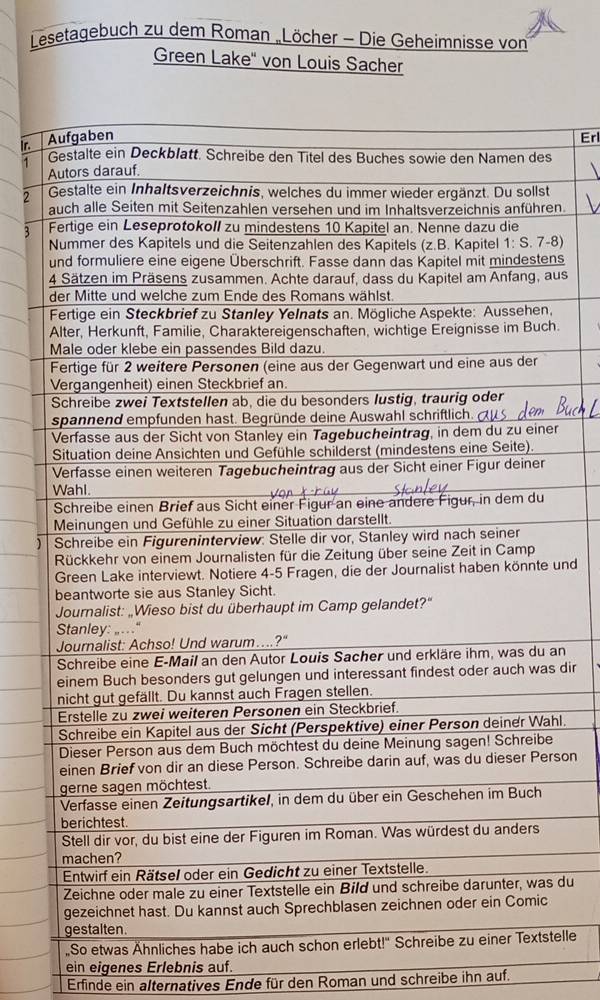 Lesetagebuch zu dem Roman „Löcher – Die Geheimnisse von
Green Lake“ von Louis Sacher
Nr. Aufgaben Erl
1 Gestalte ein Deckblatt. Schreibe den Titel des Buches sowie den Namen des
Autors darauf.
2 Gestalte ein Inhaltsverzeichnis, welches du immer wieder ergänzt. Du sollst
auch alle Seiten mit Seitenzahlen versehen und im Inhaltsverzeichnis anführen.
3 Fertige ein Leseprotokoll zu mindestens 10 Kapitel an. Nenne dazu die
Nummer des Kapitels und die Seitenzahlen des Kapitels (z.B. Kapitel 1: S. 7-8)
und formuliere eine eigene Überschrift. Fasse dann das Kapitel mit mindestens
4 Sätzen im Präsens zusammen. Achte darauf, dass du Kapitel am Anfang, aus
der Mitte und welche zum Ende des Romans wählst.
Fertige ein Steckbrief zu Stanley Yelnats an. Mögliche Aspekte: Aussehen,
Alter, Herkunft, Familie, Charaktereigenschaften, wichtige Ereignisse im Buch.
Male oder klebe ein passendes Bild dazu.
Fertige für 2 weitere Personen (eine aus der Gegenwart und eine aus der
Vergangenheit) einen Steckbrief an.
Schreibe zwei Textstellen ab, die du besonders lustig, traurig oder
spannend empfunden hast. Begründe deine Auswahl schriftlich. aus dem Buch
Verfasse aus der Sicht von Stanley ein Tagebucheintrag, in dem du zu einer
Situation deine Ansichten und Gefühle schilderst (mindestens eine Seite).
Verfasse einen weiteren Tagebucheintrag aus der Sicht einer Figur deiner
Wahl.
von x-ray Stanley
Schreibe einen Brief aus Sicht einer Figur an eine andere Figur, in dem du
Meinungen und Gefühle zu einer Situation darstellt.
Schreibe ein Figureninterview: Stelle dir vor, Stanley wird nach seiner
Rückkehr von einem Journalisten für die Zeitung über seine Zeit in Camp
Green Lake interviewt. Notiere 4-5 Fragen, die der Journalist haben könnte und
beantworte sie aus Stanley Sicht.
Journalist: „Wieso bist du überhaupt im Camp gelandet?“
Stanley: „…“
Journalist: Achso! Und warum….?“
Schreibe eine E-Mail an den Autor Louis Sacher und erkläre ihm, was du an
einem Buch besonders gut gelungen und interessant findest oder auch was dir
nicht gut gefällt. Du kannst auch Fragen stellen.
Erstelle zu zwei weiteren Personen ein Steckbrief.
Schreibe ein Kapitel aus der Sicht (Perspektive) einer Person deiner Wahl.
Dieser Person aus dem Buch möchtest du deine Meinung sagen! Schreibe
einen Brief von dir an diese Person. Schreibe darin auf, was du dieser Person
gerne sagen möchtest.
Verfasse einen Zeitungsartikel, in dem du über ein Geschehen im Buch
berichtest.
Stell dir vor, du bist eine der Figuren im Roman. Was würdest du anders
machen?
Entwirf ein Rätsel oder ein Gedicht zu einer Textstelle.
Zeichne oder male zu einer Textstelle ein Bild und schreibe darunter, was du
gezeichnet hast. Du kannst auch Sprechblasen zeichnen oder ein Comic
gestalten.
„So etwas Ähnliches habe ich auch schon erlebt!“ Schreibe zu einer Textstelle
ein eigenes Erlebnis auf.
Erfinde ein alternatives Ende für den Roman und schreibe ihn auf.